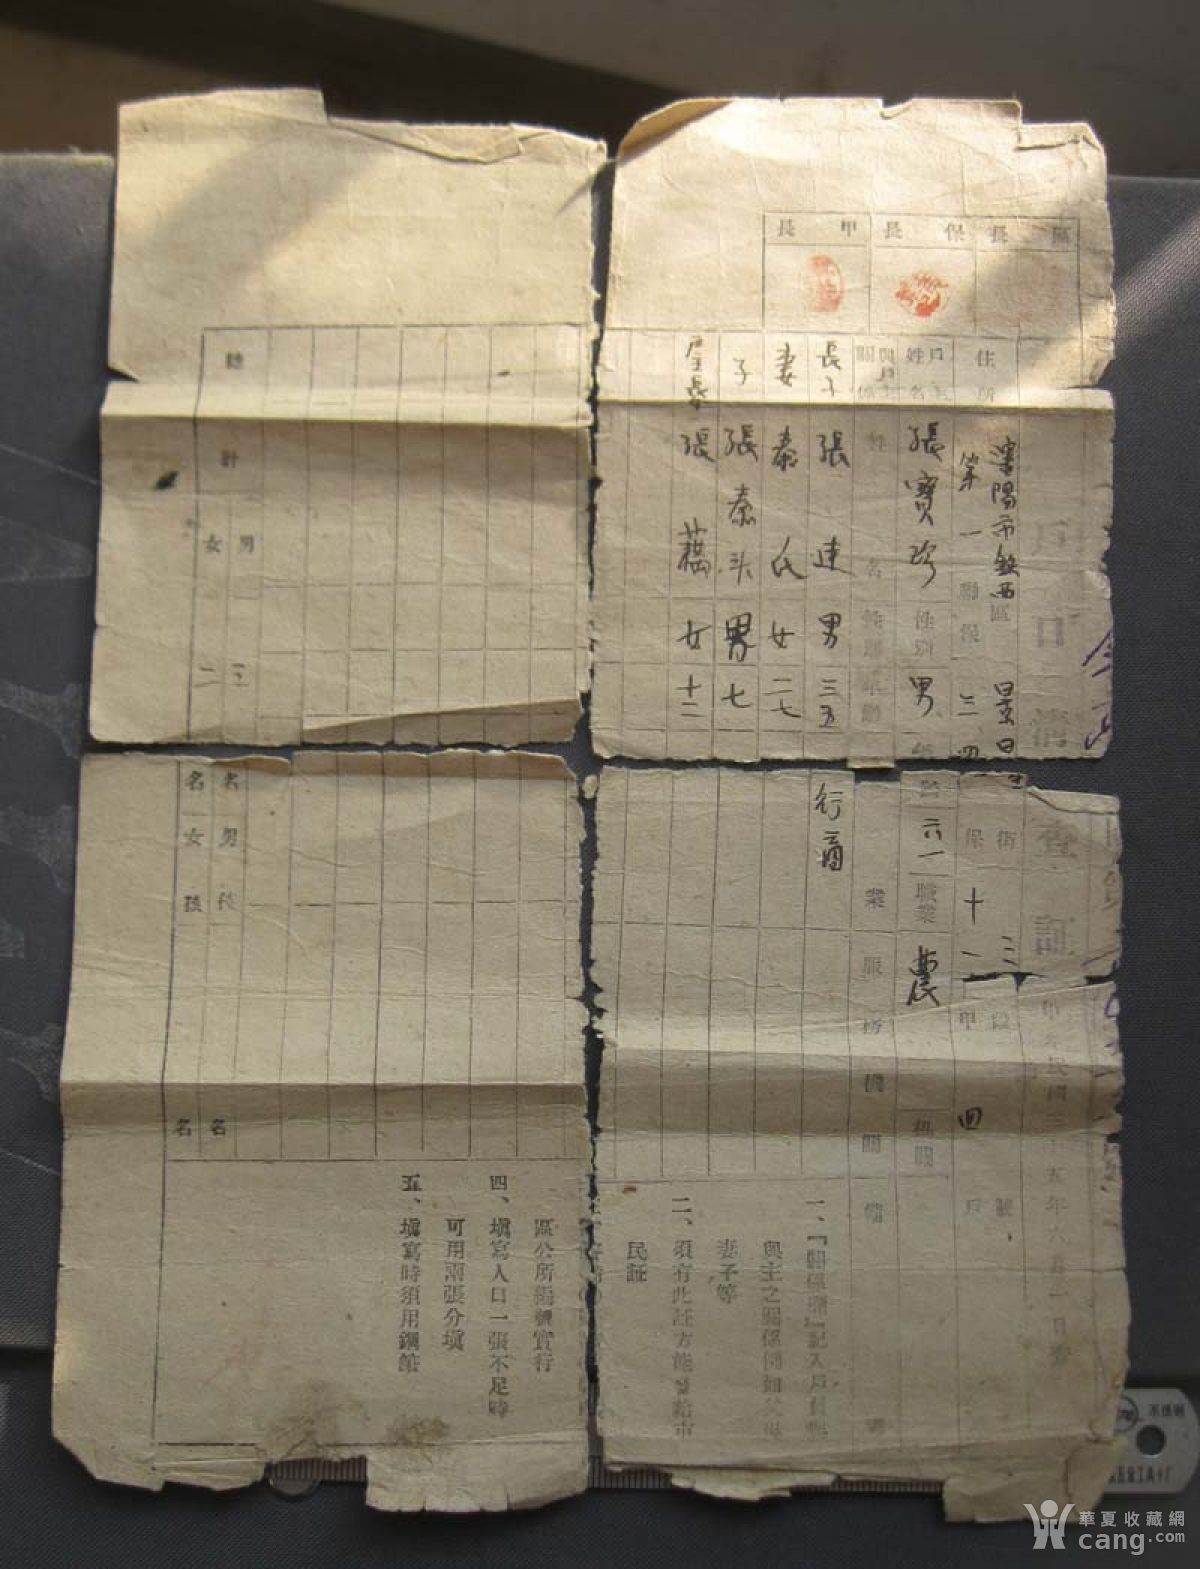 區長 保長 甲長
戶口清查証
中華民國三十五年六五一日
住所 瀋陽市鉄西區 街 三 段 號
第一聯保 三四 保 十二 甲 四 戶
戶主姓名 張寶珍 性別 男 年齡 六一 職業 農 機關
與戶主關係 姓名 性別 年齡 業 服所機關 備
長子 張連 男 三五 行商
妻 秦氏 女 二七
子 張秦头 男 七
女 十二
總計 男 三 名 男孩 名
女 二 名 女孩 名
一、『關係欄』記入戶長與
與主之關係例如父母
妻子等
二、須有此証方能發給市
民証
區公所編號實行
四、塡寫人口一張不足時
可用兩張分塡
五、塡寫時須用鋼筆
不銹鋼
華夏收藏網
cang.com